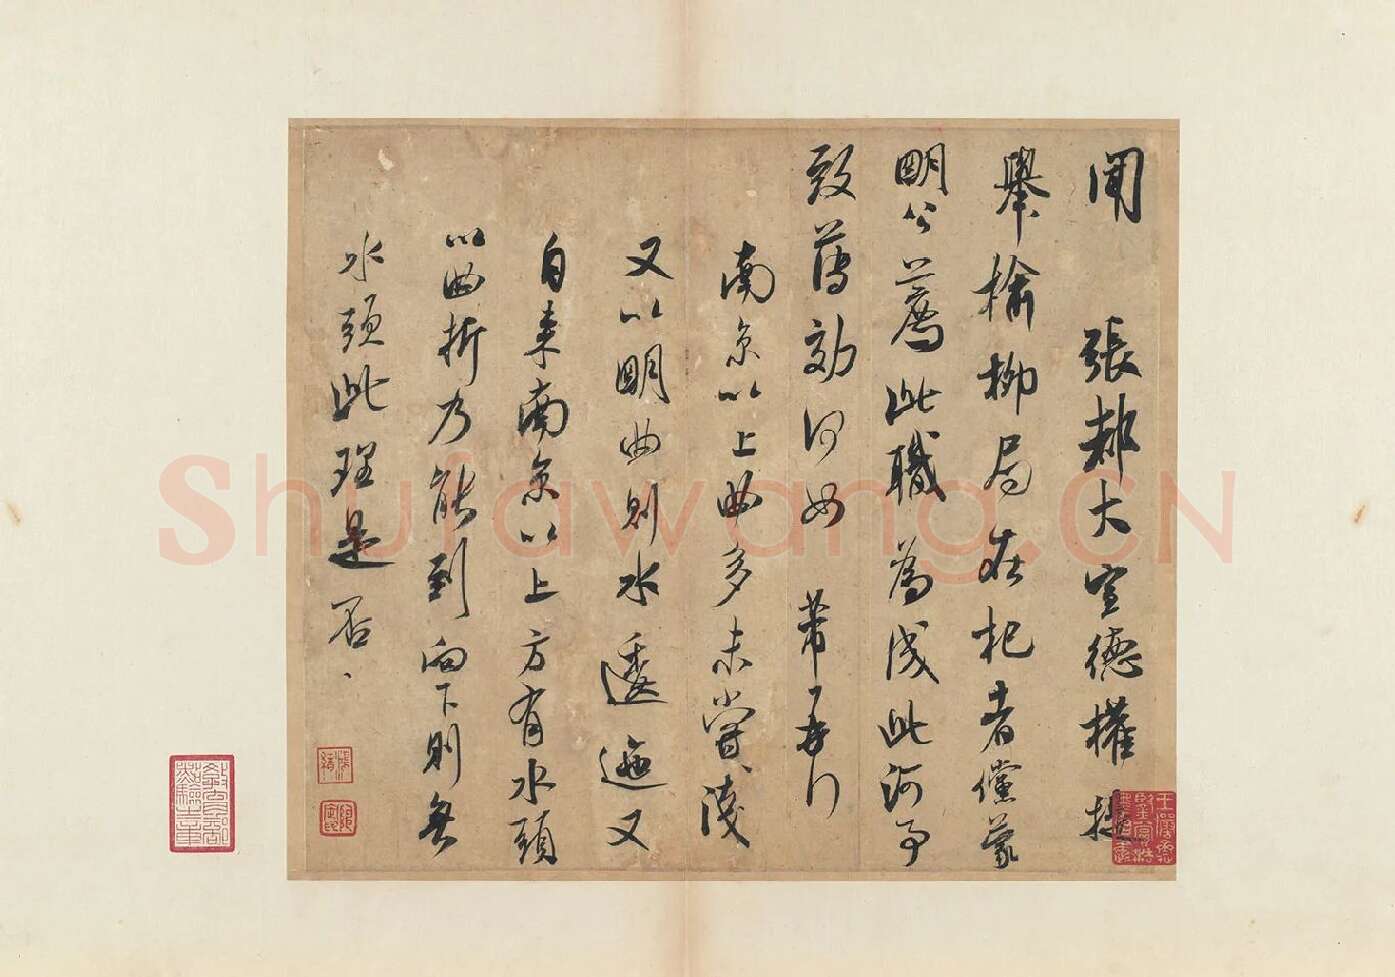 聞 張都大宣德權提
舉榆柳局在杞者儻蒙
明公薦此職為成此河事
致薄効何如 芾再行
南京以上曲多未嘗淺
又以明曲則水逶迤又
自來南京以上方有水頭
以曲折乃能到向下則無
水頭此理是否
Shufawang.CN